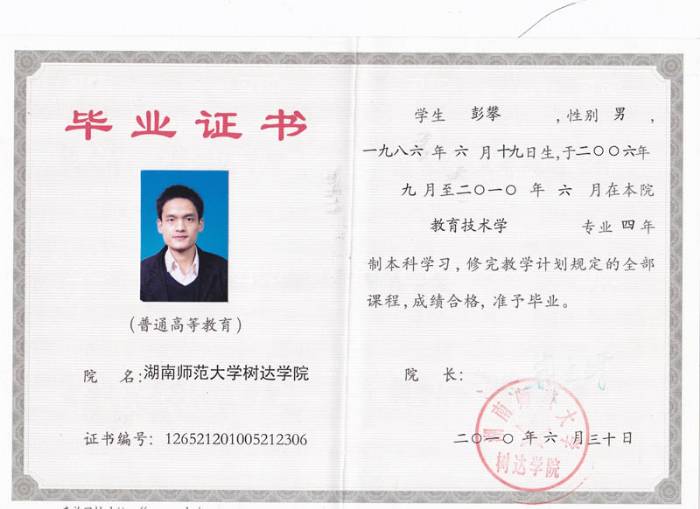 毕业证书
(普通高等教育)
院 名:湖南师范大学树达学院
证书编号: 126521201005212306
学生 彭攀 ,性别 男 ,
一九八六 年 六 月十九日生,于二〇〇六年
九 月至二〇一〇 年 六 月在本院
教育技术学 专业 四 年
制本科学习,修完教学计划规定的全部
课程,成绩合格,准予毕业。
院 长:
湖南师范大学
树达学院
二〇一〇年 六 月三十日